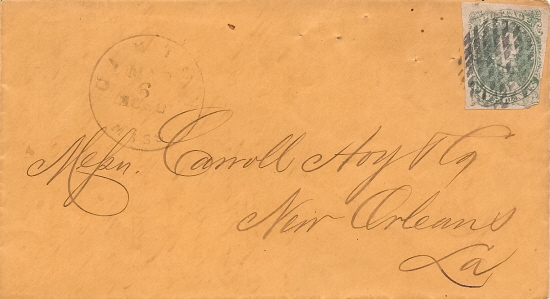 CANTON
6
MISS
Messrs. Carroll Hoy & Co
New Orleans
La